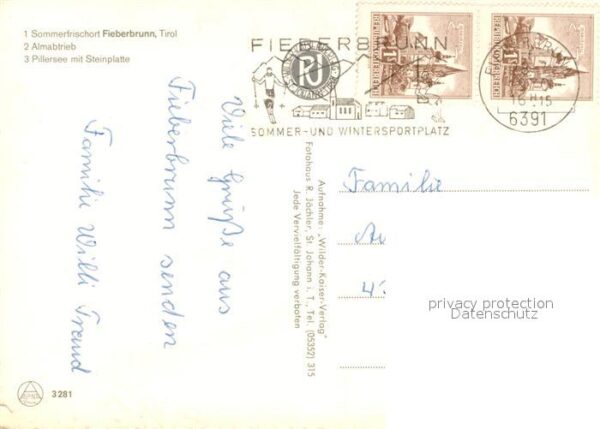 1 Sommerfrischort Fieberbrunn, Tirol
2 Almabtrieb
3 Pillersee mit Steinplatte
FIEBERBRUNN
SOMMER- UND WINTERSPORTPLATZ
REPUBLIK ÖSTERREICH
6391
Viele Grüße aus
Fieberbrunn senden
Familie Willi Traud
Aufnahme: „Wilder-Kaiser-Verlag"
Fotohaus R. Jöchler, St. Johann i. T., Tel. (05352) 315
Jede Vervielfältigung verboten
Familie
privacy protection
Datenschutz
3281